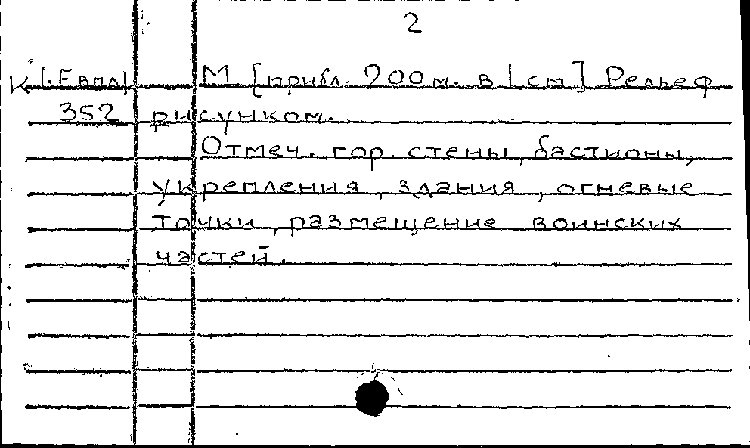 2
К1.Евпл М. [прибл. 200 м. в 1 см] Рельеф
352 рисунком.
Отмеч. гор. стены, бастионы,
укрепления, здания, огневые
точки, размещение воинских
частей.